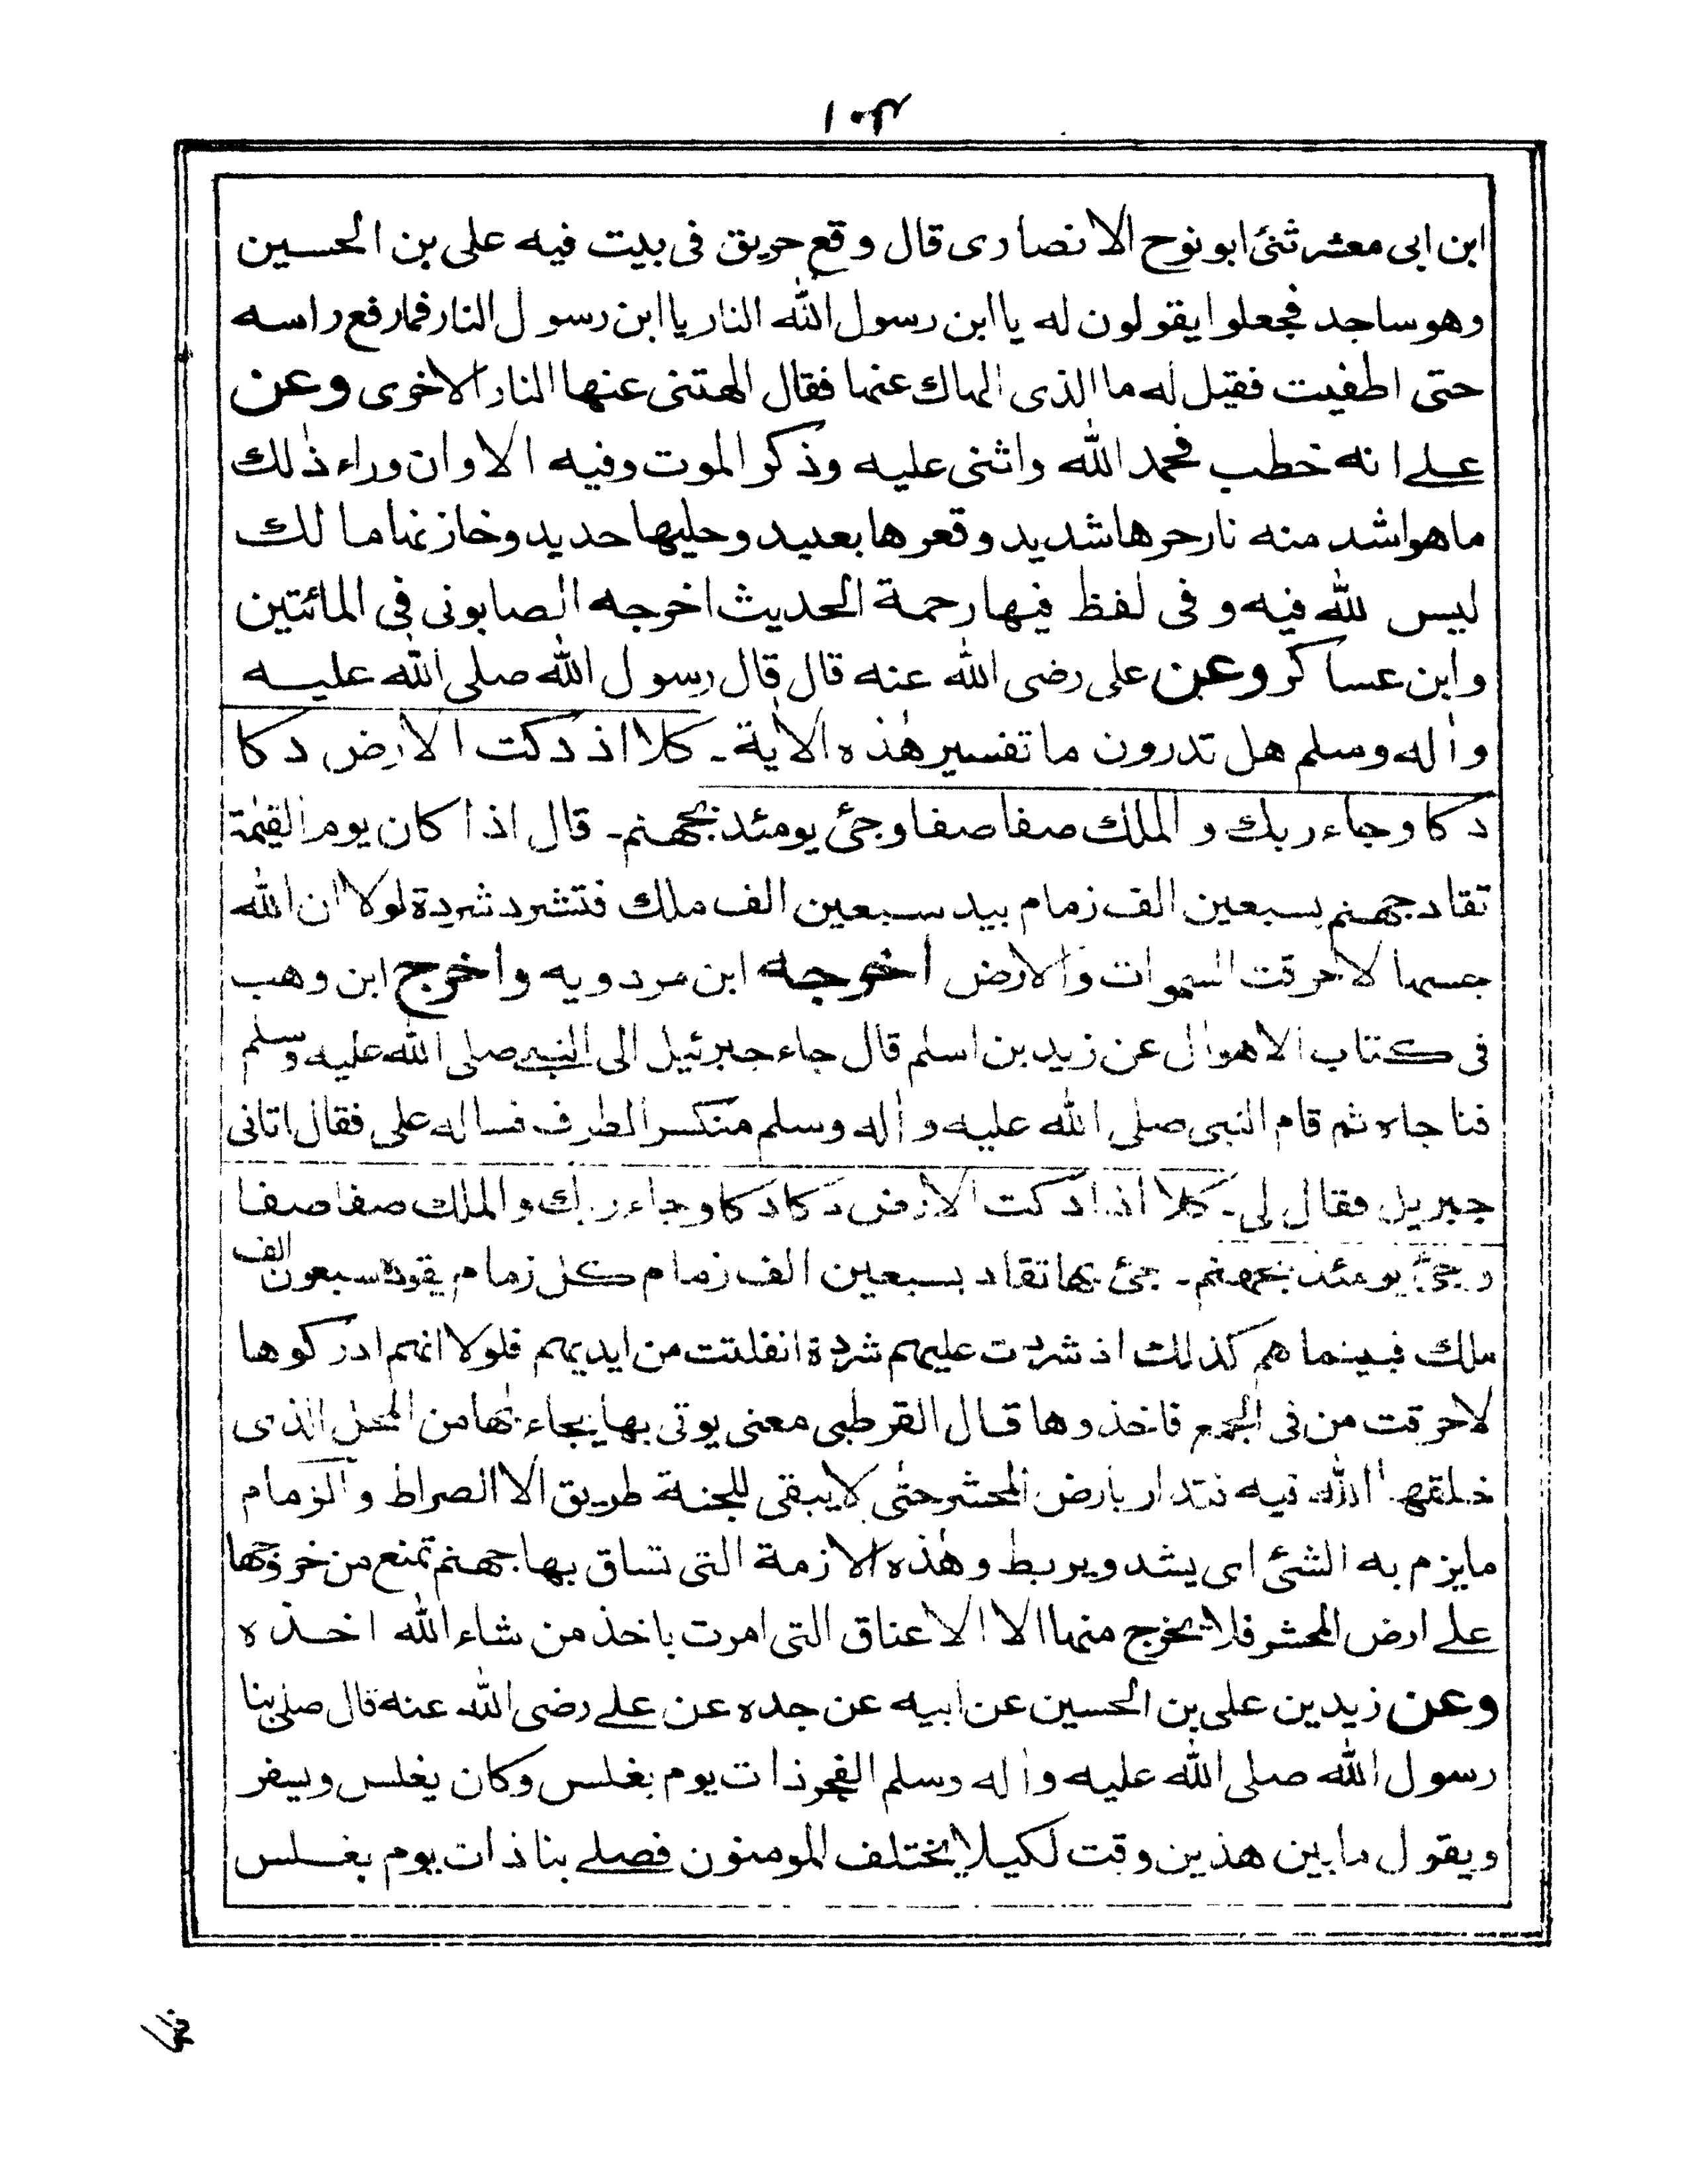 ١٠٤
ابن ابى معشر ثنى ابو نوح الانصارى قال وقع حريق فى بيت فيه على بن الحسين
وهو ساجد فجعلوا يقولون له يا ابن رسول الله النار يا ابن رسول النار فما رفع راسه
حتى اطفيت فقيل له ما الذى الهاك عنها فقال الهتنى عنها النار الاخرى وعن
على انه خطب فحمد الله واثنى عليه وذكر الموت وفيه الا وان وراء ذلك
ما هو اشد منه نار حرها شديد وقعرها بعيد وحليها حديد وخازنها مالك
ليس لله فيه و فى لفظ فيها رحمة الحديث اخرجه الصابونى فى المائتين
وابن عساكر وعن على رضى الله عنه قال قال رسول الله صلى الله عليه
واٰله وسلم هل تدرون ما تفسير هٰذه الاٰية ـ كلا اذ دكت الارض دكا
دكا وجاء ربك و الملك صفا صفا وجئ يومئذ بجهنم ـ قال اذا كان يوم القيٰمة
تقاد جهنم بسبعين الف زمام بيد سبعين الف ملك فتشرد شردة لولا ان الله
حبسها لاحرقت السموات والارض اخرجه ابن مردويه واخرج ابن وهب
فى كتاب الاهوال عن زيد بن اسلم قال جاء جبرئيل الى النبى صلى الله عليه وسلم
فناجاه ثم قام النبى صلى الله عليه واٰله وسلم منكسر الطرف فساله على فقال اتانى
جبريل فقال لى ـ كلا اذا دكت الارض دكا دكا وجاء ربك والملك صفا صفا
وجئ يومئذ بجهنم ـ جئ بها تقاد بسبعين الف زمام كل زمام يقوده سبعون الف
ملك فبينما هم كذلك اذ شردت عليهم شردة انفلتت من ايديهم فلولا انهم ادركوها
لاحرقت من فى الجمع فاخذوها قال القرطبى معنى يوتى بها يجاء بها من المحل الذى
خلقها الله فيه فتدار بارض المحشر حتٰى لا يبقى للجنة طريق الا الصراط والزمام
ما يزم به الشئ اى يشد ويربط وهٰذه الازمة التى تساق بها جهنم تمنع من خروجها
على ارض المحشر فلا يخرج منها الا الاعناق التى امرت باخذ من شاء الله اخذه
وعن زيد بن على بن الحسين عن ابيه عن جده عن على رضى الله عنه قال صلى بنا
رسول الله صلى الله عليه واٰله وسلم الفجر ذات يوم بغلس وكان يغلس ويسفر
ويقول ما بين هذين وقت لكيلا يختلف المومنون فصلى بنا ذات يوم بغلس